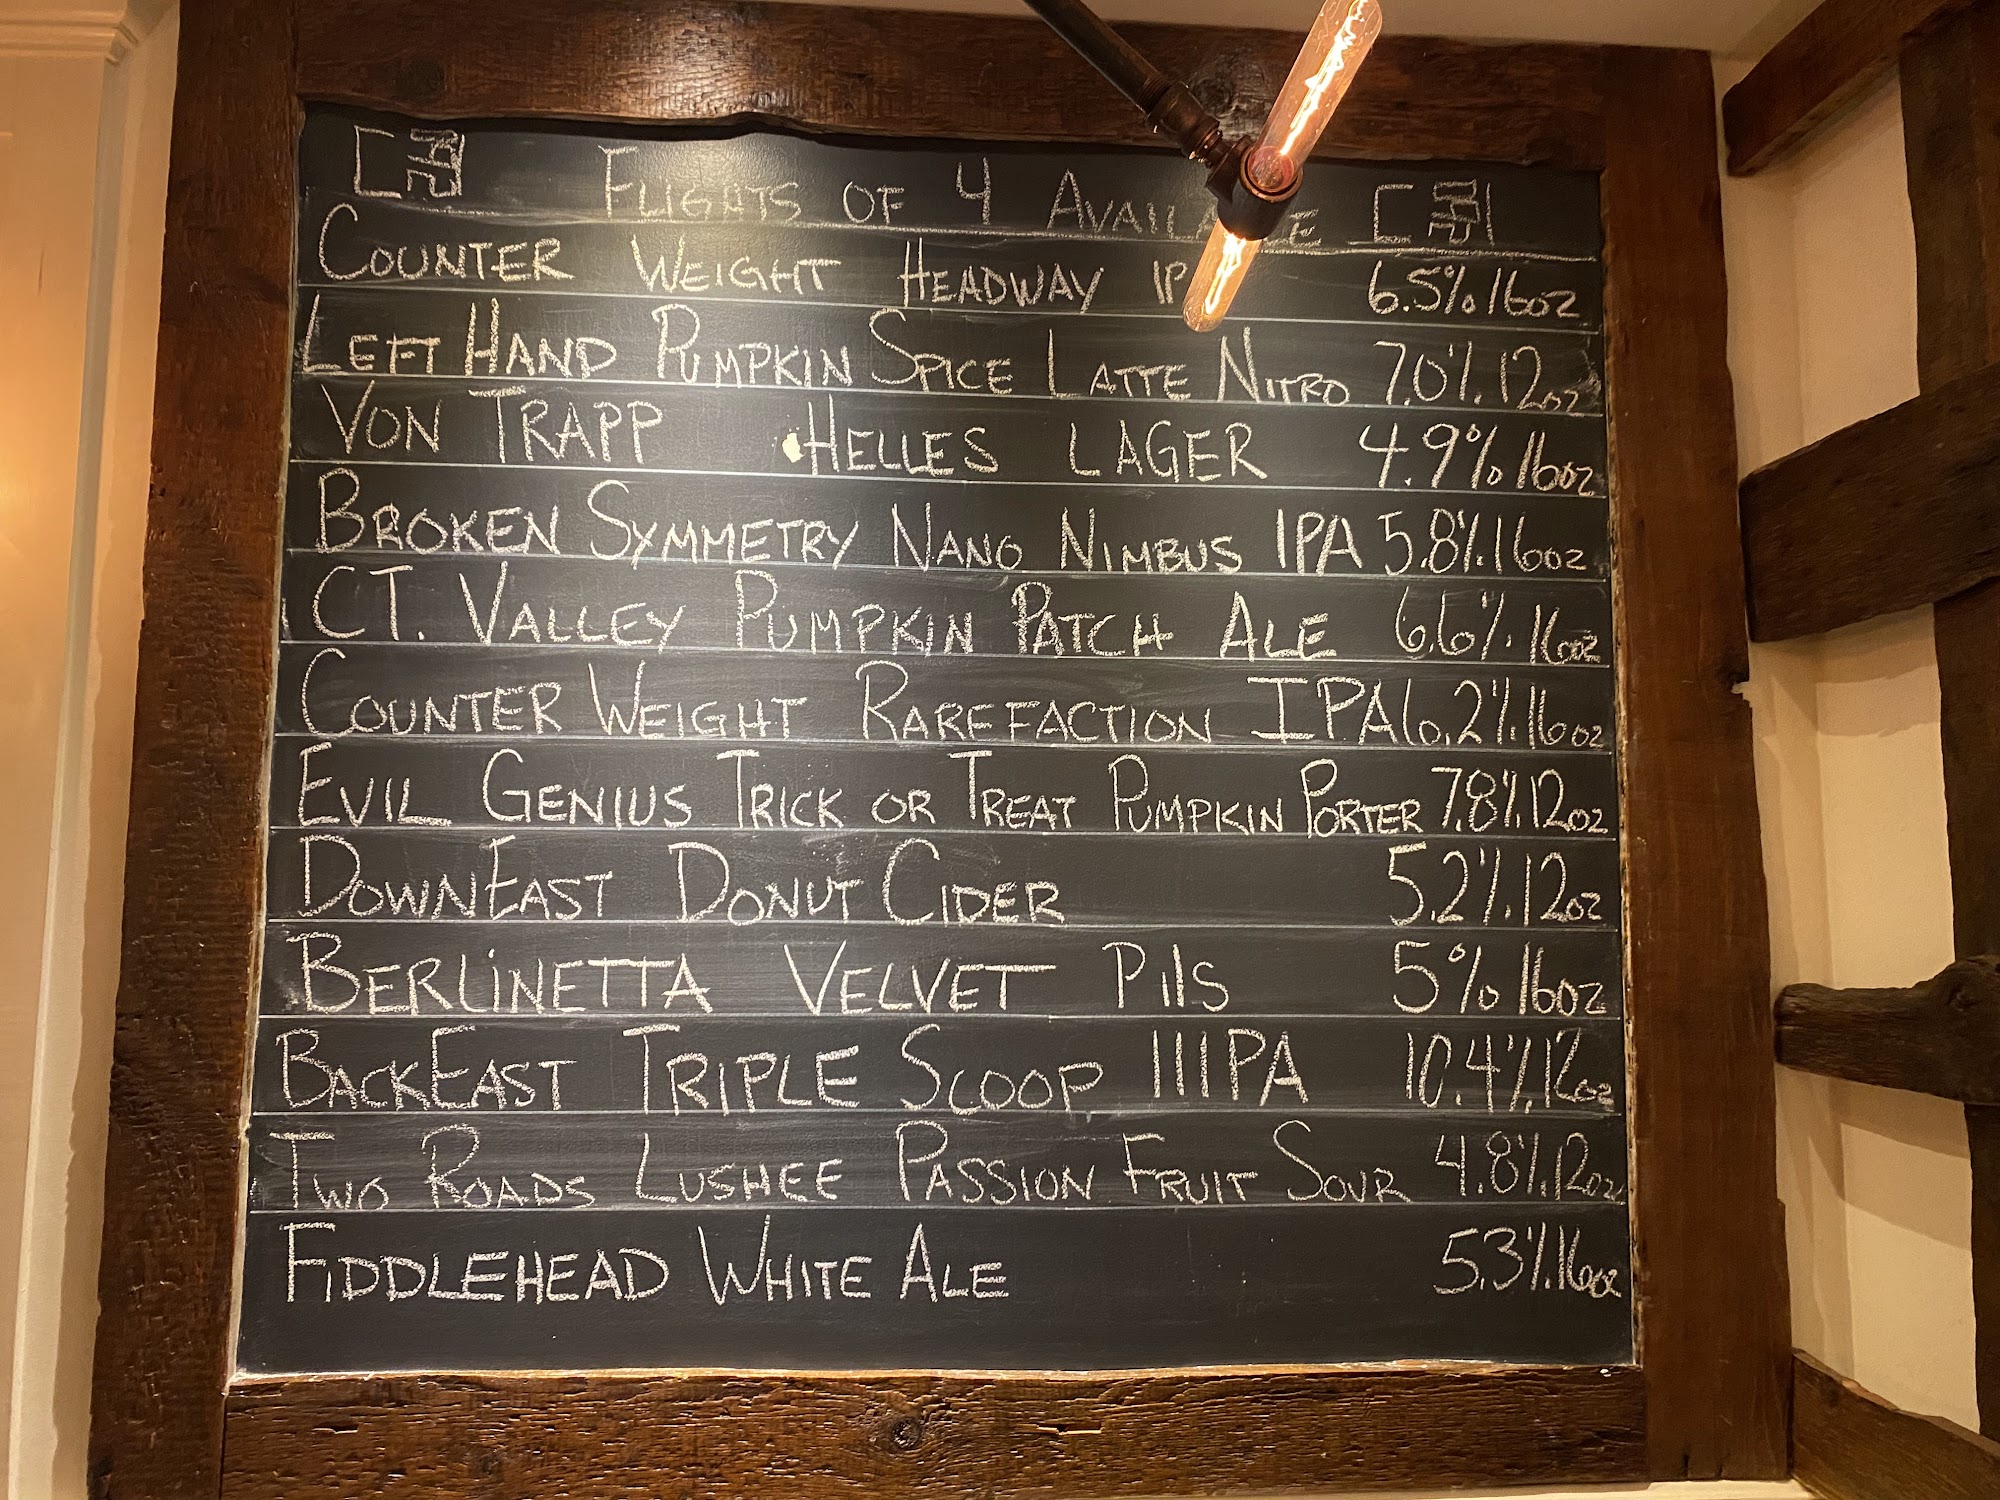 Flights of 4 Available
Counter Weight Headway IP 6.5% 16oz
Left Hand Pumpkin Spice Latte Nitro 7.0% 12oz
Von Trapp Helles Lager 4.9% 16oz
Broken Symmetry Nano Nimbus IPA 5.8% 16oz
CT. Valley Pumpkin Patch Ale 6.6% 16oz
Counter Weight Rarefaction IPA 6.2% 16oz
Evil Genius Trick or Treat Pumpkin Porter 7.8% 12oz
DownEast Donut Cider 5.2% 12oz
Berlinetta Velvet Pils 5% 16oz
BackEast Triple Scoop IIIPA 10.4% 12oz
Two Roads Lushee Passion Fruit Sour 4.8% 12oz
Fiddlehead White Ale 5.3% 16oz